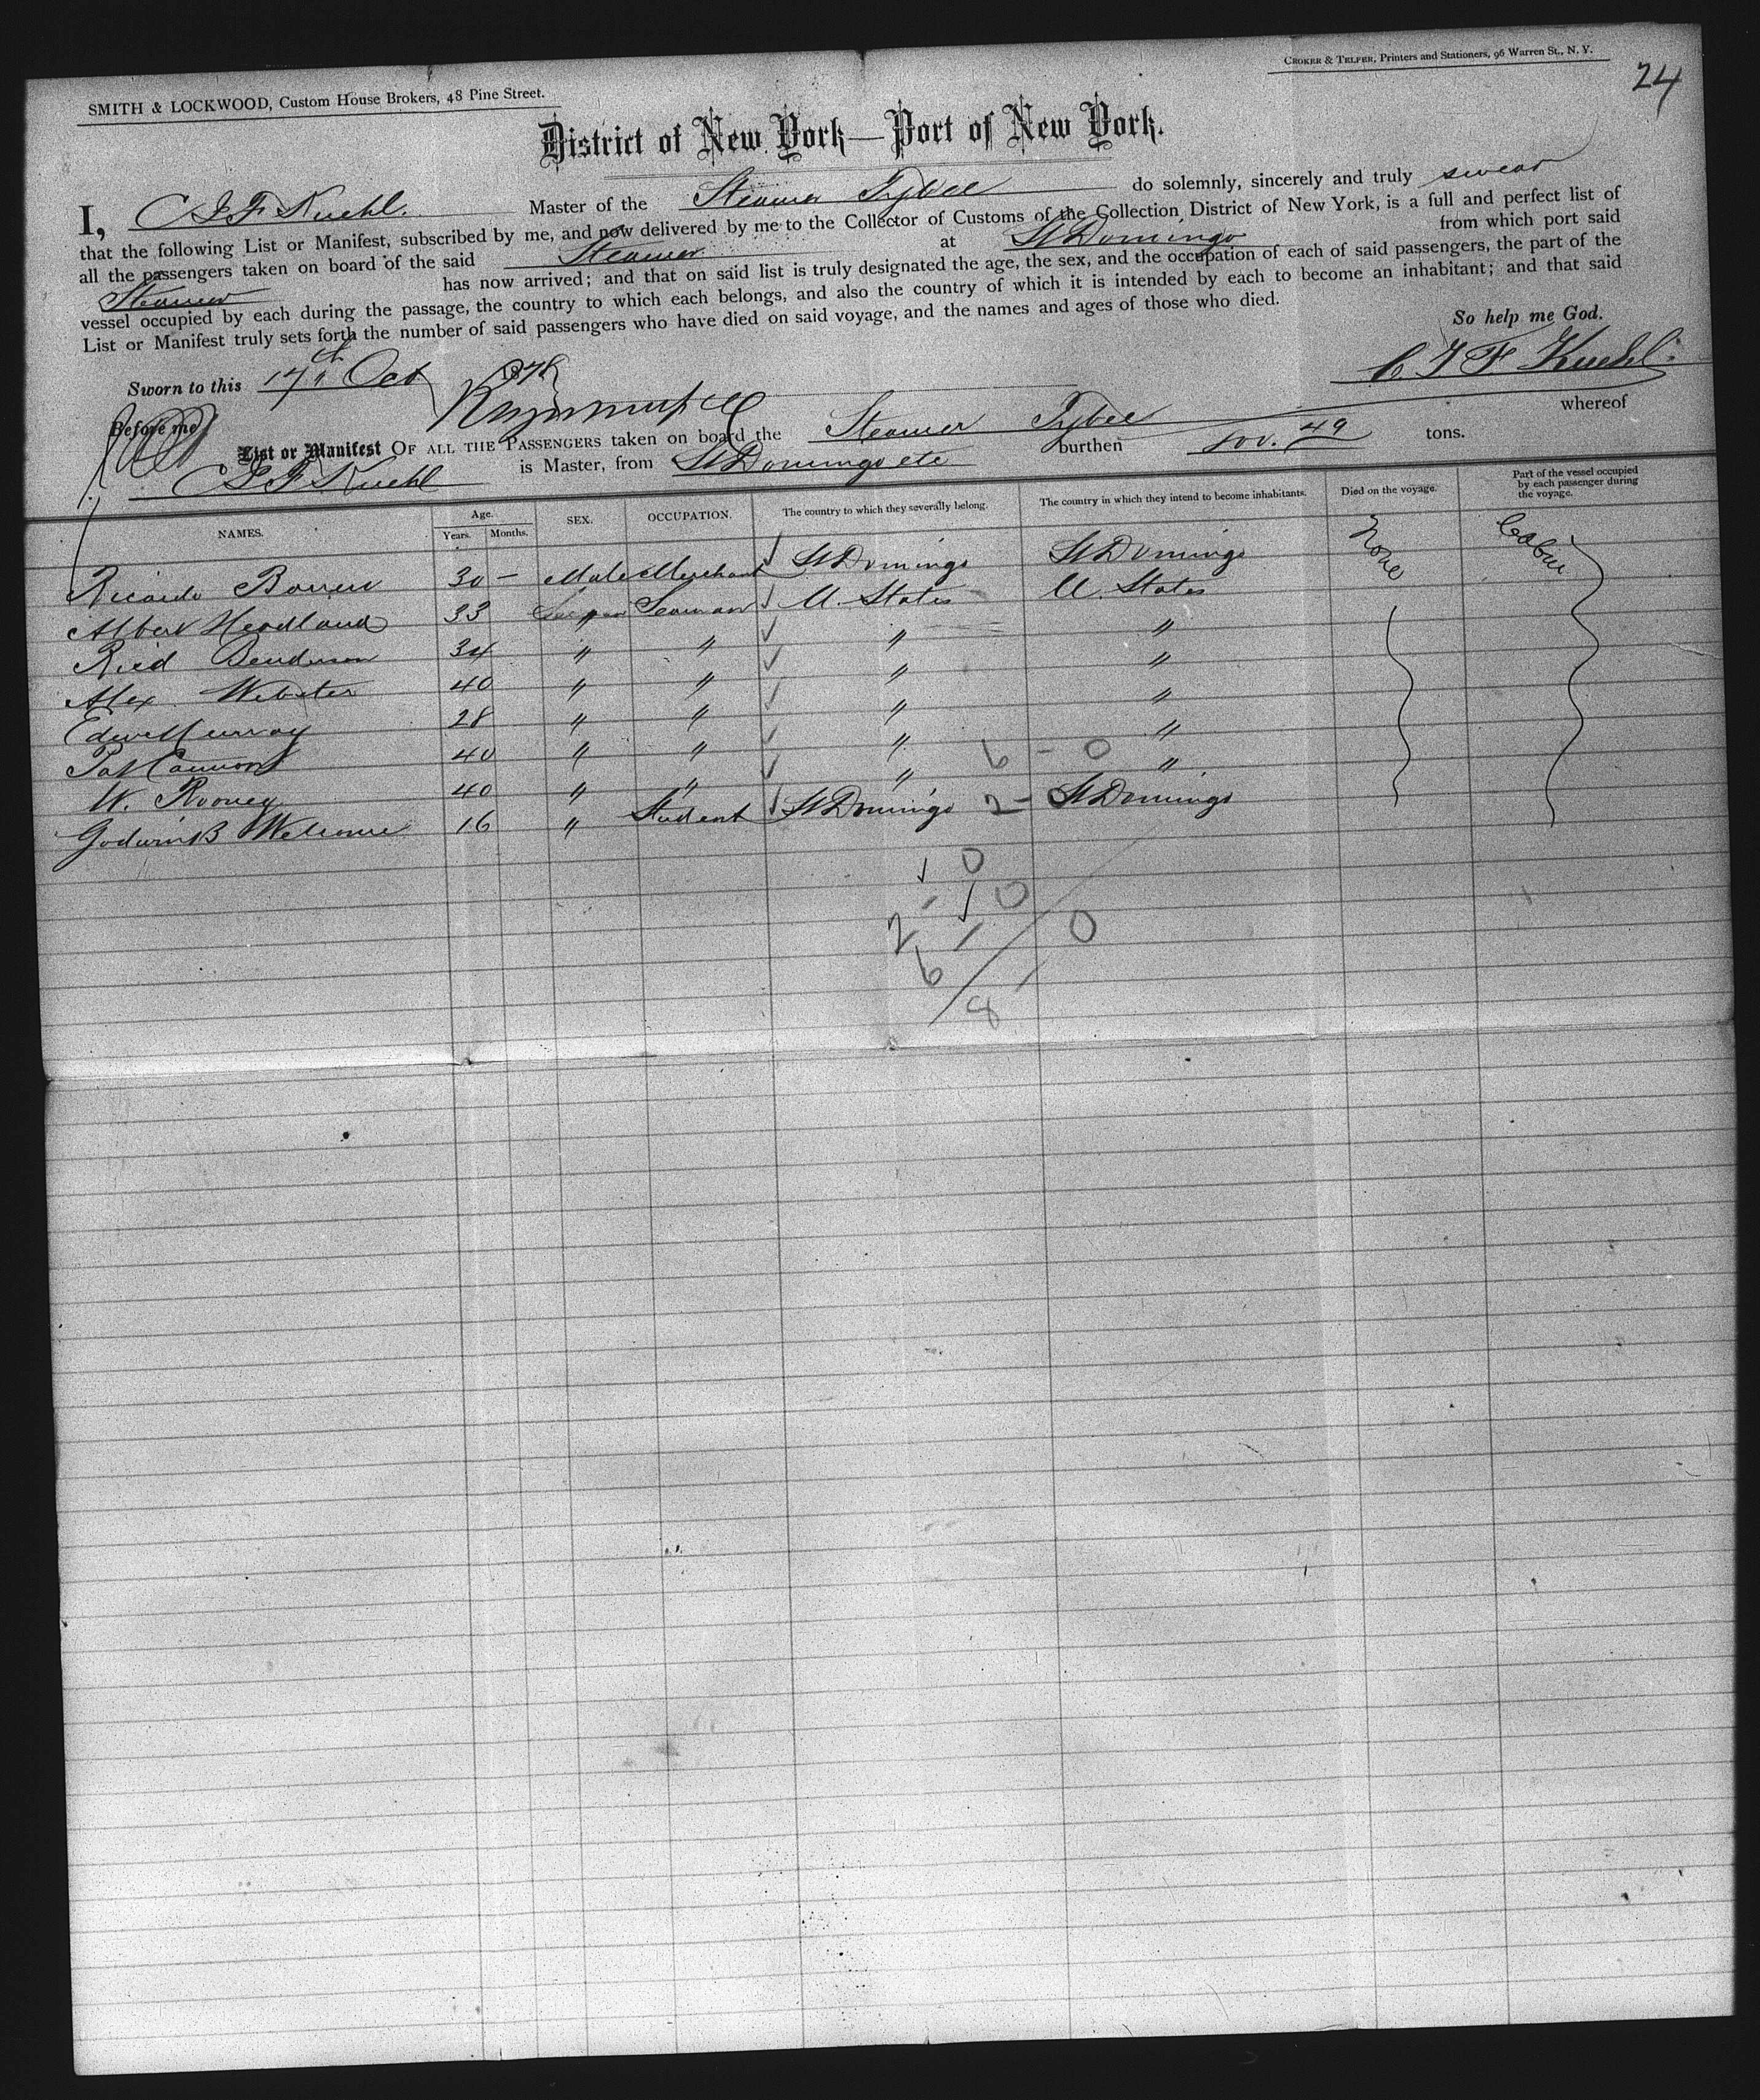 CROKER & TELFER, Printers and Stationers, 96 Warren St., N. Y.
24
SMITH & LOCKWOOD, Custom House Brokers, 48 Pine Street.
District of New York—Port of New York.
I, C J F Kuehl. Master of the Steamer Tybee do solemnly, sincerely and truly swear
that the following List or Manifest, subscribed by me, and now delivered by me to the Collector of Customs of the Collection District of New York, is a full and perfect list of
all the passengers taken on board of the said Steamer at St Domingo from which port said
Steamer has now arrived; and that on said list is truly designated the age, the sex, and the occupation of each of said passengers, the part of the
vessel occupied by each during the passage, the country to which each belongs, and also the country of which it is intended by each to become an inhabitant; and that said
List or Manifest truly sets forth the number of said passengers who have died on said voyage, and the names and ages of those who died.
So help me God.
Sworn to this 17th Oct 1878 C J F Kuehl.
Before me
List or Manifest OF ALL THE PASSENGERS taken on board the Steamer Tybee whereof
C J F Kuehl is Master, from St Domingo etc burthen 49 tons.
NAMES. Age. Years. Months. SEX. OCCUPATION. The country to which they severally belong. The country in which they intend to become inhabitants. Died on the voyage. Part of the vessel occupied by each passenger during the voyage.
Ricardo 30 — Male Merchant St Domingo St Domingo None Cabin
Albert Headland 33 " Seaman U. States U. States
Ried 34 " " " "
Alex Webster 40 " " " "
Edw Murray 28 " " " "
Pat Cannon 40 " " " "
6 - 0
W. Rooney 40 " " " "
Godwin B Welcome 16 " Student St Domingo 2 - St Domingo
0
2 - 0
6 - 0
8